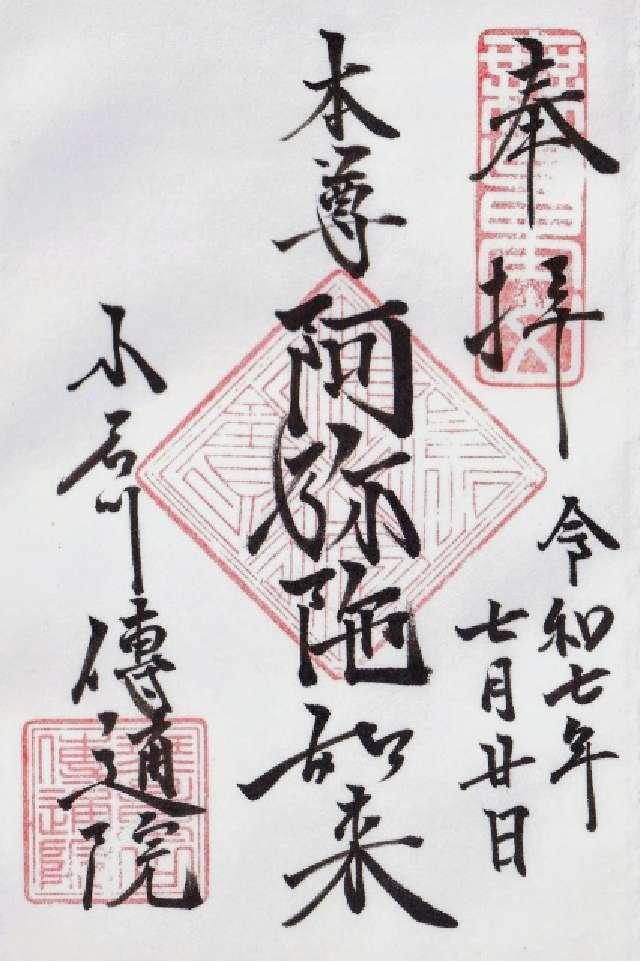 奉拝
令和七年
七月廿日
本尊
阿弥陀如来
小石川傳通院